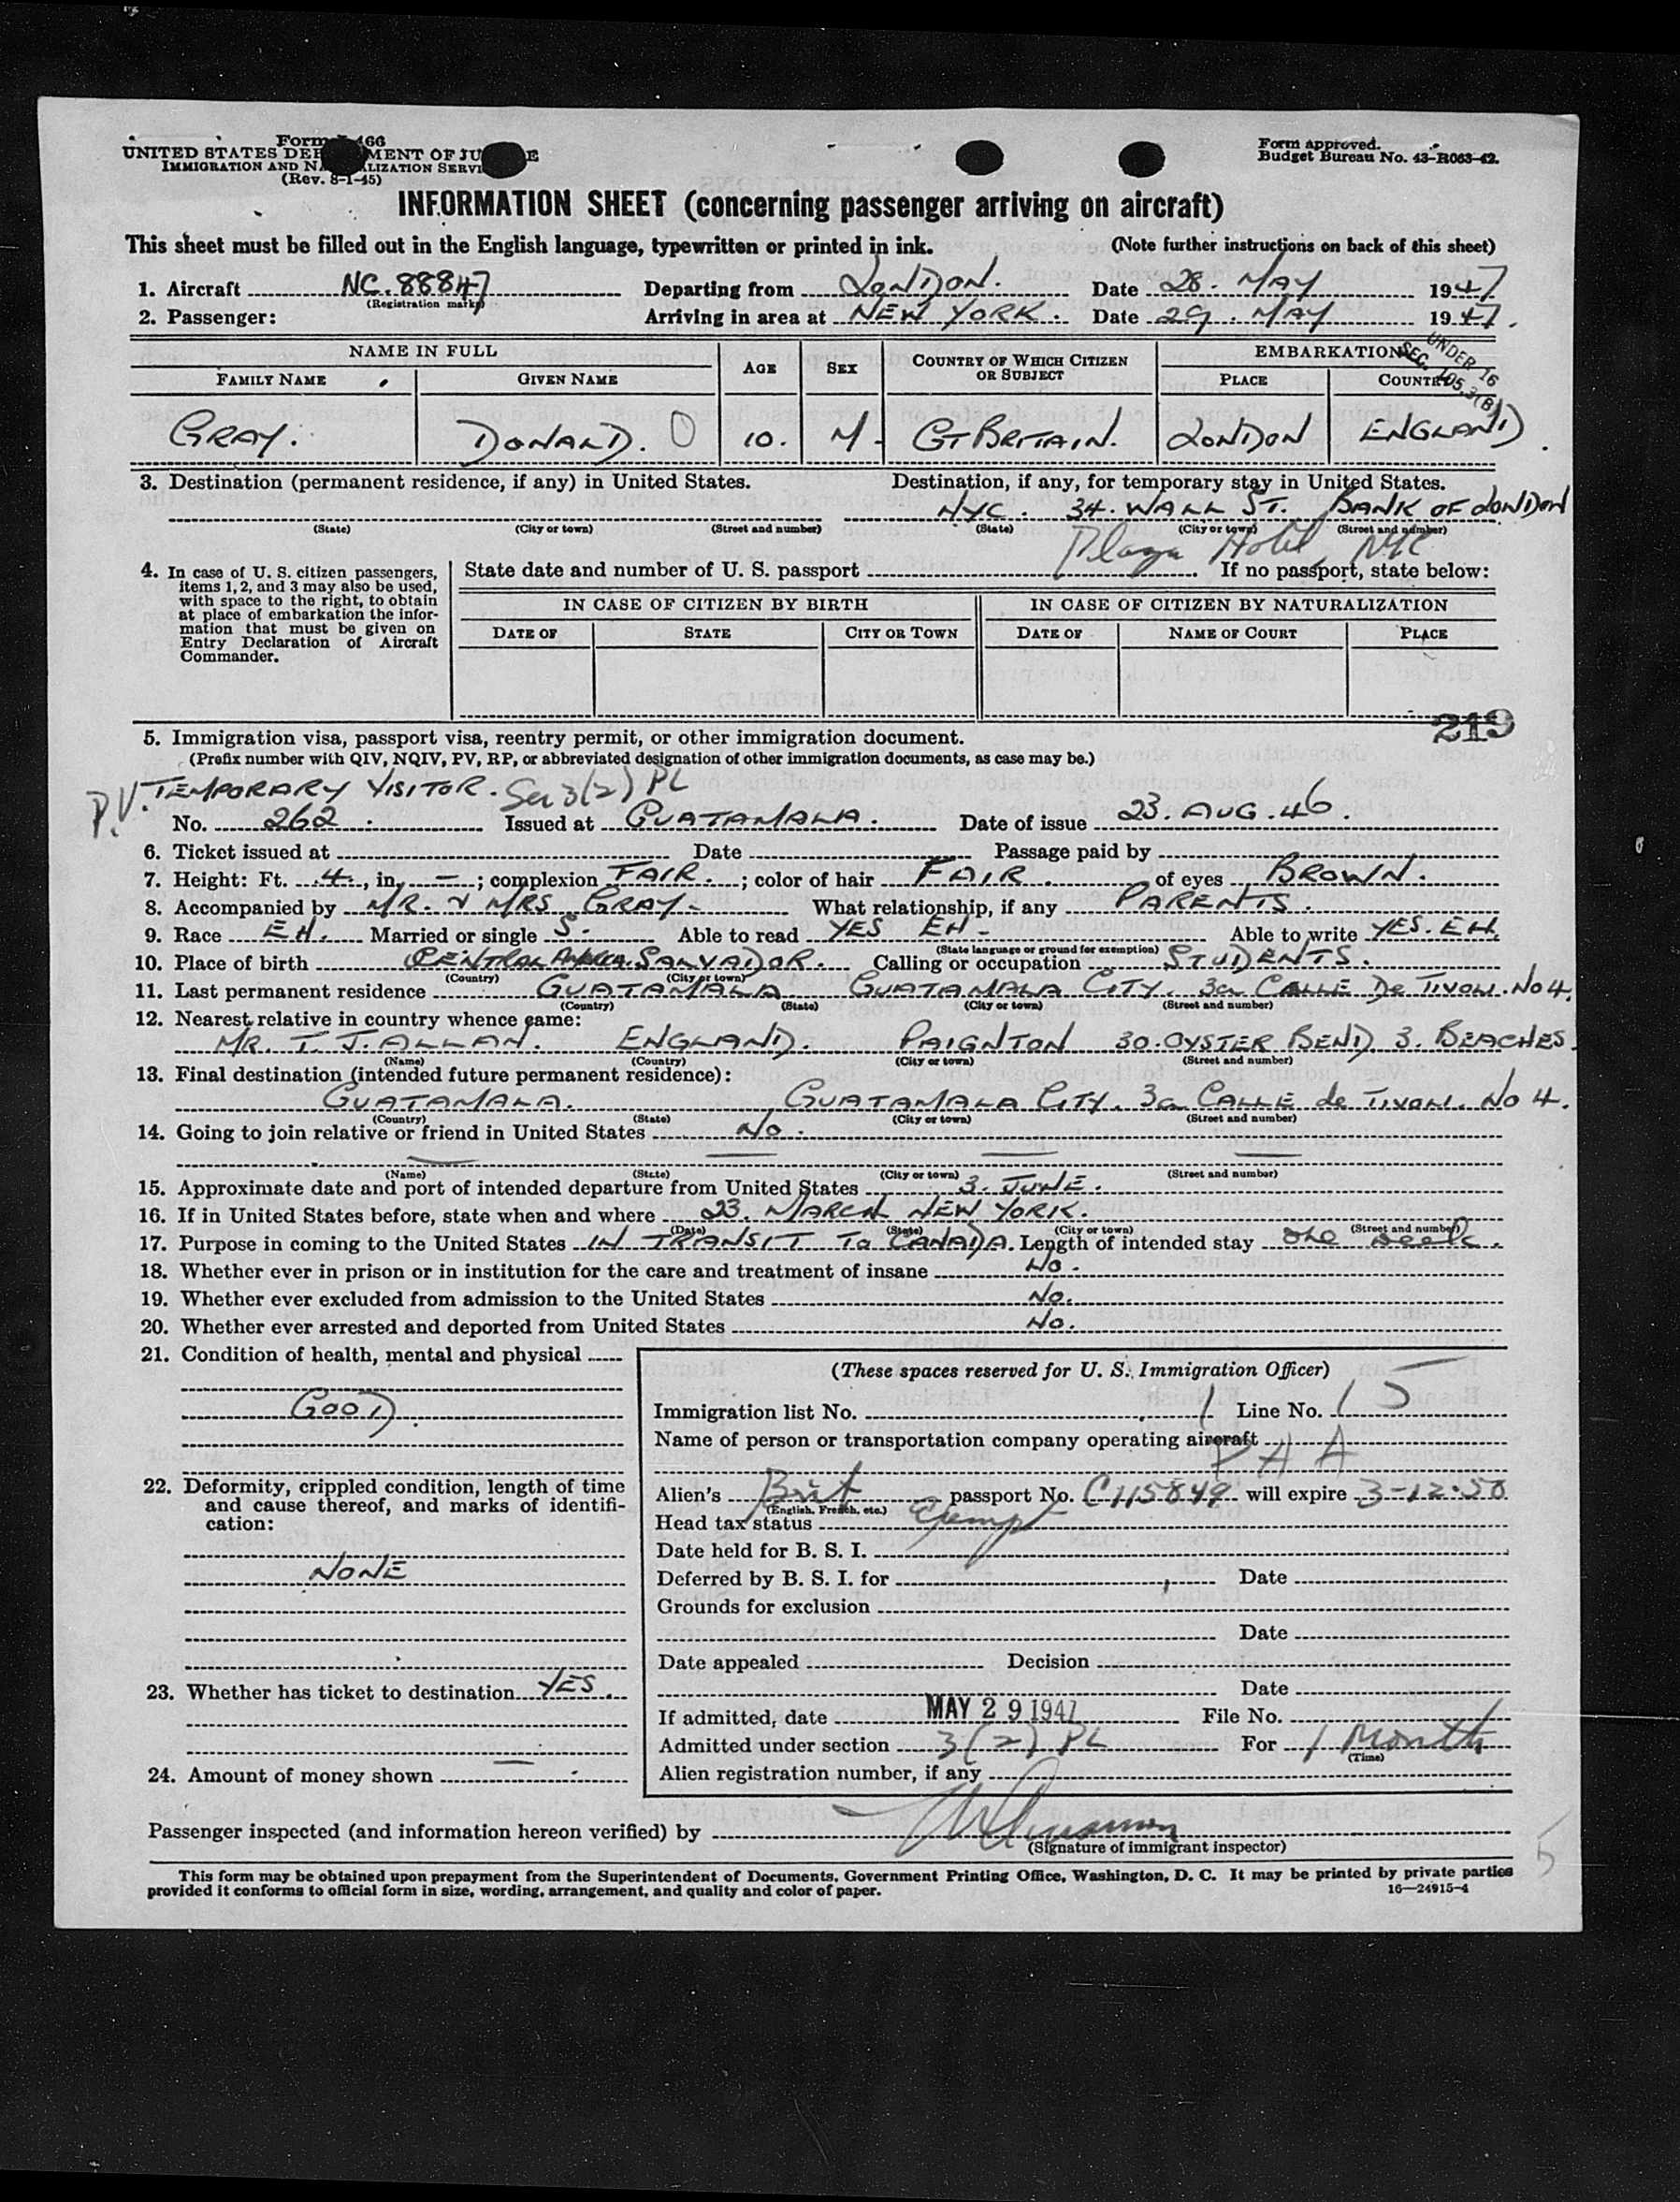 Form 466
UNITED STATES DEPARTMENT OF JUSTICE
IMMIGRATION AND NATURALIZATION SERVICE
(Rev. 8-1-45)
Form approved.
Budget Bureau No. 43-R063-42.
INFORMATION SHEET (concerning passenger arriving on aircraft)
This sheet must be filled out in the English language, typewritten or printed in ink. (Note further instructions on back of this sheet)
1. Aircraft NC. 88847 Departing from LONDON. Date 28. MAY 1947
(Registration marks)
2. Passenger: Arriving in area at NEW YORK. Date 29. MAY 1947.
UNDER 16
SEC. 105.3(B)
NAME IN FULL AGE SEX COUNTRY OF WHICH CITIZEN OR SUBJECT EMBARKATION
FAMILY NAME GIVEN NAME PLACE COUNTRY
GRAY. DONALD. 10. M. GT BRITAIN. LONDON ENGLAND.
3. Destination (permanent residence, if any) in United States. Destination, if any, for temporary stay in United States.
NYC. 34. WALL ST. BANK OF LONDON
(State) (City or town) (Street and number) (State) (City or town) (Street and number)
Plaza Hotel, NYC
4. In case of U. S. citizen passengers, items 1, 2, and 3 may also be used, with space to the right, to obtain at place of embarkation the information that must be given on Entry Declaration of Aircraft Commander.
State date and number of U. S. passport If no passport, state below:
IN CASE OF CITIZEN BY BIRTH IN CASE OF CITIZEN BY NATURALIZATION
DATE OF STATE CITY OR TOWN DATE OF NAME OF COURT PLACE
219
5. Immigration visa, passport visa, reentry permit, or other immigration document.
(Prefix number with QIV, NQIV, PV, RP, or abbreviated designation of other immigration documents, as case may be.)
P.V. TEMPORARY VISITOR. Sec 3(2) PL
No. 262. Issued at GUATAMALA. Date of issue 23. AUG. 46.
6. Ticket issued at Date Passage paid by
7. Height: Ft. 4, in. —; complexion FAIR.; color of hair FAIR. of eyes BROWN.
8. Accompanied by MR. & MRS GRAY- What relationship, if any PARENTS.
9. Race EH. Married or single S. Able to read YES EH- Able to write YES. EH.
(State language or ground for exemption)
10. Place of birth CENTRAL AMERICA. SALVADOR. Calling or occupation STUDENTS.
(Country) (City or town)
11. Last permanent residence GUATAMALA GUATAMALA CITY. 3a CALLE De TIVOLI. No 4.
(Country) (State) (City or town) (Street and number)
12. Nearest relative in country whence came:
MR. T. J. ALLAN. ENGLAND. PAIGNTON 30. OYSTER BEND 3. BEACHES.
(Name) (Country) (City or town) (Street and number)
13. Final destination (intended future permanent residence):
GUATAMALA. GUATAMALA CITY. 3a CALLE de TIVOLI. No 4.
(Country) (State) (City or town) (Street and number)
14. Going to join relative or friend in United States No.
(Name) (State) (City or town) (Street and number)
15. Approximate date and port of intended departure from United States 3. JUNE.
16. If in United States before, state when and where 23. MARCH NEW YORK.
(Date) (State) (City or town) (Street and number)
17. Purpose in coming to the United States IN TRANSIT To CANADA. Length of intended stay one week.
18. Whether ever in prison or in institution for the care and treatment of insane No.
19. Whether ever excluded from admission to the United States No.
20. Whether ever arrested and deported from United States No.
21. Condition of health, mental and physical
GOOD.
22. Deformity, crippled condition, length of time and cause thereof, and marks of identification:
NONE
23. Whether has ticket to destination YES.
24. Amount of money shown —
(These spaces reserved for U. S. Immigration Officer)
Immigration list No. 1 Line No. 15
Name of person or transportation company operating aircraft
PAA
Alien's Brit passport No. C115849 will expire 3-12-50
(English, French, etc.)
Head tax status Exempt
Date held for B. S. I.
Deferred by B. S. I. for Date
Grounds for exclusion
Date
Date appealed Decision
Date
If admitted, date MAY 29 1947 File No.
Admitted under section 3(2) PL For 1 Month
(Time)
Alien registration number, if any
Passenger inspected (and information hereon verified) by
(Signature of immigrant inspector)
5
This form may be obtained upon prepayment from the Superintendent of Documents, Government Printing Office, Washington, D. C. It may be printed by private parties
provided it conforms to official form in size, wording, arrangement, and quality and color of paper.
16—24915-4